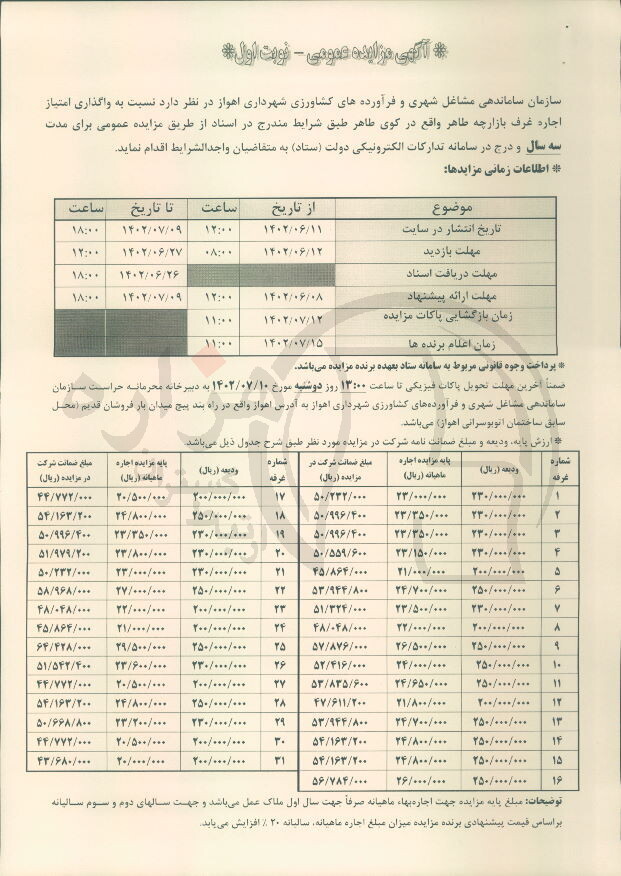 * آگهی مزایده عمومی – نوبت اول *
سازمان ساماندهی مشاغل شهری و فرآورده های کشاورزی شهرداری اهواز در نظر دارد نسبت به واگذاری امتیاز
اجاره غرف بازارچه طاهر واقع در کوی طاهر طبق شرایط مندرج در اسناد از طریق مزایده عمومی برای مدت
سه سال و درج در سامانه تدارکات الکترونیکی دولت (ستاد) به متقاضیان واجدالشرایط اقدام نماید.
* اطلاعات زمانی مزایدها:
موضوع از تاریخ ساعت تا تاریخ ساعت
تاریخ انتشار در سایت ۱۴۰۲/۰۶/۱۱ ۱۲:۰۰ ۱۴۰۲/۰۷/۰۹ ۱۸:۰۰
مهلت بازدید ۱۴۰۲/۰۶/۱۲ ۰۸:۰۰ ۱۴۰۲/۰۶/۲۷ ۱۲:۰۰
مهلت دریافت اسناد ۱۴۰۲/۰۶/۲۶ ۱۸:۰۰
مهلت ارائه پیشنهاد ۱۴۰۲/۰۶/۰۸ ۱۲:۰۰ ۱۴۰۲/۰۷/۰۹ ۱۸:۰۰
زمان بازگشایی پاکات مزایده ۱۴۰۲/۰۷/۱۲ ۱۱:۰۰
زمان اعلام برنده ها ۱۴۰۲/۰۷/۱۵ ۱۱:۰۰
* پرداخت وجوه قانونی مربوط به سامانه ستاد بعهده برنده مزایده می‌باشد.
ضمناً آخرین مهلت تحویل پاکات فیزیکی تا ساعت ۱۳:۰۰ روز دوشنبه مورخ ۱۴۰۲/۰۷/۱۰ به دبیرخانه محرمانه حراست سازمان
ساماندهی مشاغل شهری و فرآورده‌های کشاورزی شهرداری اهواز به آدرس اهواز واقع در راه بند پیچ میدان بار فروشان قدیم (محل
سابق ساختمان اتوبوسرانی اهواز) می‌باشد.
* ارزش پایه، ودیعه و مبلغ ضمانت نامه شرکت در مزایده مورد نظر طبق شرح جدول ذیل می‌باشد.
شماره غرفه ودیعه (ریال) پایه مزایده اجاره ماهیانه (ریال) مبلغ ضمانت شرکت در مزایده (ریال) شماره غرفه ودیعه (ریال) پایه مزایده اجاره ماهیانه (ریال) مبلغ ضمانت شرکت در مزایده (ریال)
۱ ۲۳۰/۰۰۰/۰۰۰ ۲۳/۰۰۰/۰۰۰ ۵۰/۲۳۲/۰۰۰ ۱۷ ۲۰۰/۰۰۰/۰۰۰ ۲۰/۵۰۰/۰۰۰ ۴۴/۷۷۲/۰۰۰
۲ ۲۳۰/۰۰۰/۰۰۰ ۲۳/۳۵۰/۰۰۰ ۵۰/۹۹۶/۴۰۰ ۱۸ ۲۵۰/۰۰۰/۰۰۰ ۲۴/۸۰۰/۰۰۰ ۵۴/۱۶۳/۲۰۰
۳ ۲۳۰/۰۰۰/۰۰۰ ۲۳/۳۵۰/۰۰۰ ۵۰/۹۹۶/۴۰۰ ۱۹ ۲۳۰/۰۰۰/۰۰۰ ۲۳/۳۵۰/۰۰۰ ۵۰/۹۹۶/۴۰۰
۴ ۲۳۰/۰۰۰/۰۰۰ ۲۳/۱۵۰/۰۰۰ ۵۰/۵۵۹/۶۰۰ ۲۰ ۲۳۰/۰۰۰/۰۰۰ ۲۳/۸۰۰/۰۰۰ ۵۱/۹۷۹/۲۰۰
۵ ۲۰۰/۰۰۰/۰۰۰ ۲۱/۰۰۰/۰۰۰ ۴۵/۸۶۴/۰۰۰ ۲۱ ۲۳۰/۰۰۰/۰۰۰ ۲۳/۰۰۰/۰۰۰ ۵۰/۲۳۲/۰۰۰
۶ ۲۵۰/۰۰۰/۰۰۰ ۲۴/۷۰۰/۰۰۰ ۵۳/۹۴۴/۸۰۰ ۲۲ ۲۵۰/۰۰۰/۰۰۰ ۲۷/۰۰۰/۰۰۰ ۵۸/۹۶۸/۰۰۰
۷ ۲۳۰/۰۰۰/۰۰۰ ۲۳/۵۰۰/۰۰۰ ۵۱/۳۲۴/۰۰۰ ۲۳ ۲۰۰/۰۰۰/۰۰۰ ۲۲/۰۰۰/۰۰۰ ۴۸/۰۴۸/۰۰۰
۸ ۲۰۰/۰۰۰/۰۰۰ ۲۲/۰۰۰/۰۰۰ ۴۸/۰۴۸/۰۰۰ ۲۴ ۲۰۰/۰۰۰/۰۰۰ ۲۱/۰۰۰/۰۰۰ ۴۵/۸۶۴/۰۰۰
۹ ۲۵۰/۰۰۰/۰۰۰ ۲۶/۵۰۰/۰۰۰ ۵۷/۸۷۶/۰۰۰ ۲۵ ۲۵۰/۰۰۰/۰۰۰ ۲۹/۵۰۰/۰۰۰ ۶۴/۴۲۸/۰۰۰
۱۰ ۲۵۰/۰۰۰/۰۰۰ ۲۴/۰۰۰/۰۰۰ ۵۲/۴۱۶/۰۰۰ ۲۶ ۲۳۰/۰۰۰/۰۰۰ ۲۳/۶۰۰/۰۰۰ ۵۱/۵۴۲/۴۰۰
۱۱ ۲۵۰/۰۰۰/۰۰۰ ۲۴/۶۵۰/۰۰۰ ۵۳/۸۳۵/۶۰۰ ۲۷ ۲۰۰/۰۰۰/۰۰۰ ۲۰/۵۰۰/۰۰۰ ۴۴/۷۷۲/۰۰۰
۱۲ ۲۰۰/۰۰۰/۰۰۰ ۲۱/۸۰۰/۰۰۰ ۴۷/۶۱۱/۲۰۰ ۲۸ ۲۵۰/۰۰۰/۰۰۰ ۲۴/۸۰۰/۰۰۰ ۵۴/۱۶۳/۲۰۰
۱۳ ۲۵۰/۰۰۰/۰۰۰ ۲۴/۷۰۰/۰۰۰ ۵۳/۹۴۴/۸۰۰ ۲۹ ۲۳۰/۰۰۰/۰۰۰ ۲۳/۲۰۰/۰۰۰ ۵۰/۶۶۸/۸۰۰
۱۴ ۲۵۰/۰۰۰/۰۰۰ ۲۴/۸۰۰/۰۰۰ ۵۴/۱۶۳/۲۰۰ ۳۰ ۲۰۰/۰۰۰/۰۰۰ ۲۰/۵۰۰/۰۰۰ ۴۴/۷۷۲/۰۰۰
۱۵ ۲۵۰/۰۰۰/۰۰۰ ۲۴/۸۰۰/۰۰۰ ۵۴/۱۶۳/۲۰۰ ۳۱ ۲۰۰/۰۰۰/۰۰۰ ۲۰/۰۰۰/۰۰۰ ۴۳/۶۸۰/۰۰۰
۱۶ ۲۵۰/۰۰۰/۰۰۰ ۲۶/۰۰۰/۰۰۰ ۵۶/۷۸۴/۰۰۰
توضیحات: مبلغ پایه مزایده جهت اجاره‌بهاء ماهیانه صرفاً جهت سال اول ملاک عمل می‌باشد و جهت سالهای دوم و سوم سالیانه
براساس قیمت پیشنهادی برنده مزایده میزان مبلغ اجاره ماهیانه، سالیانه ۲۰ ٪ افزایش می‌یابد.